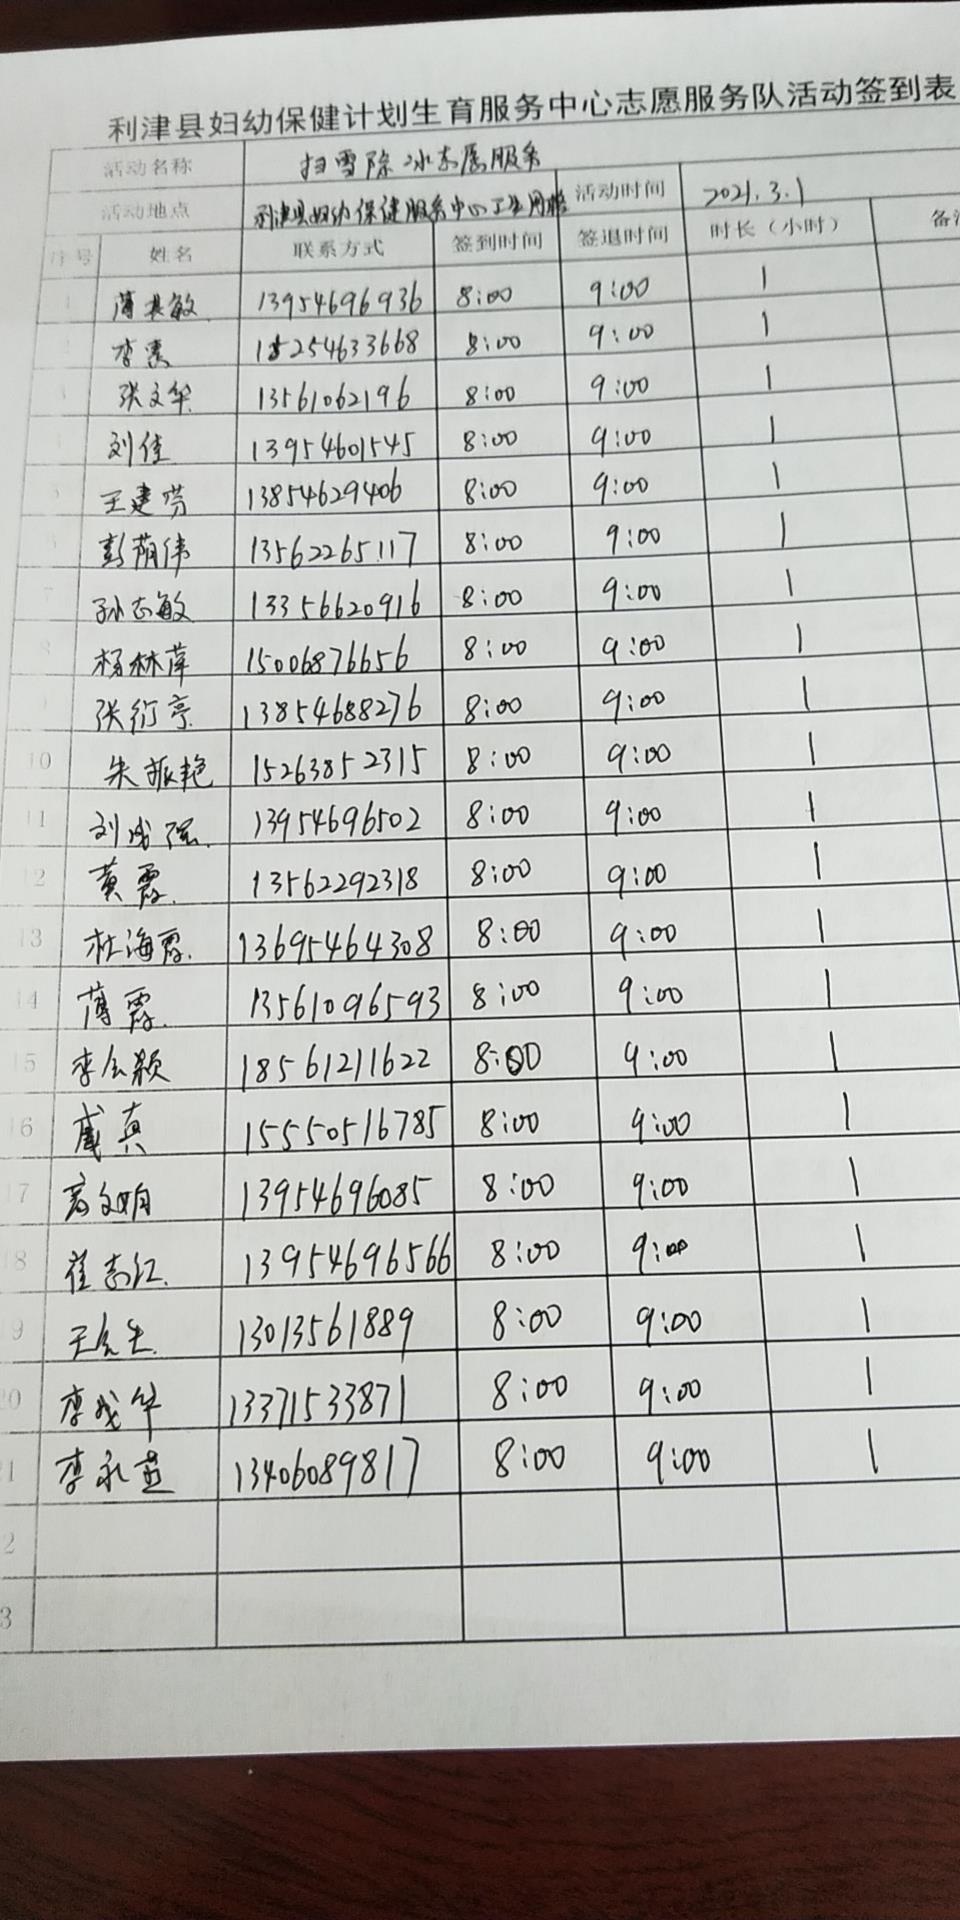 利津县妇幼保健计划生育服务中心志愿服务队活动签到表
活动名称 扫雪除冰志愿服务
活动地点 利津县妇幼保健服务中心卫生 活动时间 2021.3.1
序号 姓名 联系方式 签到时间 签退时间 时长（小时） 备注
1 薄其敏 13954696936 8:00 9:00 1
2 李 15254633668 8:00 9:00 1
张文华 13561062196 8:00 9:00 1
刘佳 13954601545 8:00 9:00 1
5 王建芳 13854629406 8:00 9:00 1
彭荫伟 13562265117 8:00 9:00 1
7 孙志敏 13356620916 8:00 9:00 1
8 杨林萍 15006876656 8:00 9:00 1
张衍亭 13854688276 8:00 9:00 1
10 朱振艳 15263852315 8:00 9:00 1
11 刘成强 13954696502 8:00 9:00 1
12 黄霞 13562292318 8:00 9:00 1
13 杜海霞 13695464308 8:00 9:00 1
14 薄霞 13561096593 8:00 9:00 1
15 李会颖 18561211622 8:00 9:00 1
16 真 15550516785 8:00 9:00 1
17 高文明 13954696085 8:00 9:00 1
18 崔志红 13954696566 8:00 9:00 1
19 王 13013561889 8:00 9:00 1
20 李成华 13371533871 8:00 9:00 1
21 李永英 13406089817 8:00 9:00 1
2
3